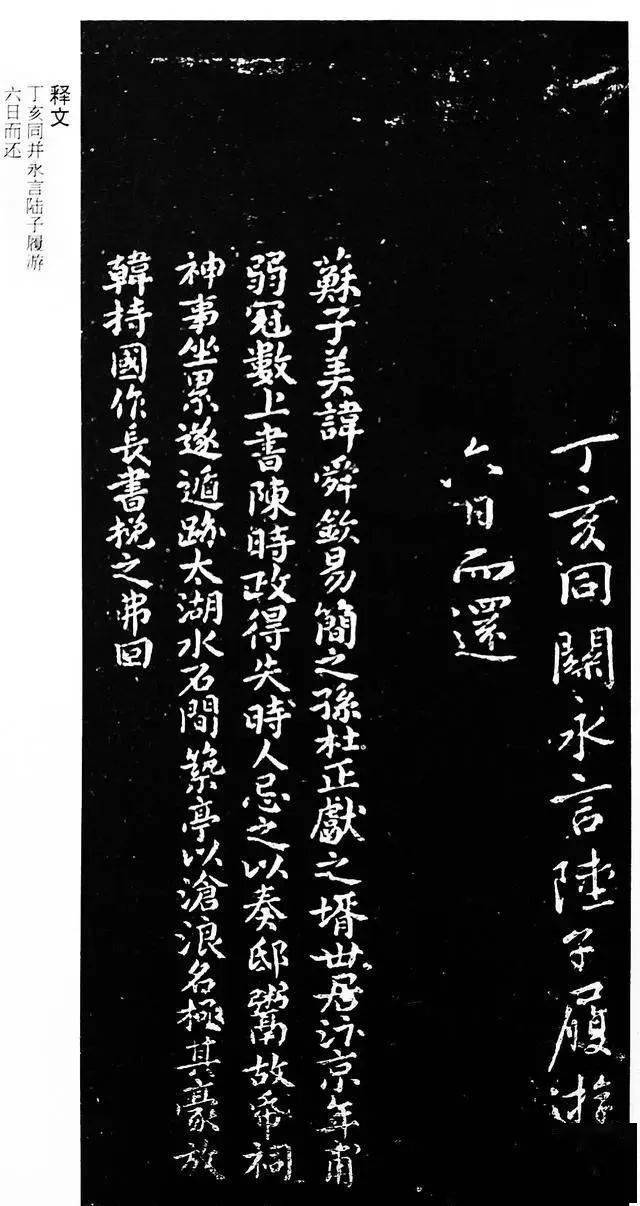 丁亥同關永言陸子履游
六日而還
蘇子美諱舜欽易簡之孫杜正獻之壻世居汴京年甫
弱冠數上書陳時政得失時人忌之以奏邸鬻故帋祠
神事坐累遂遁跡太湖水石間築亭以滄浪名極其豪放
韓持國作長書挽之弗回
释文
丁亥同并永言陆子履游
六日而还